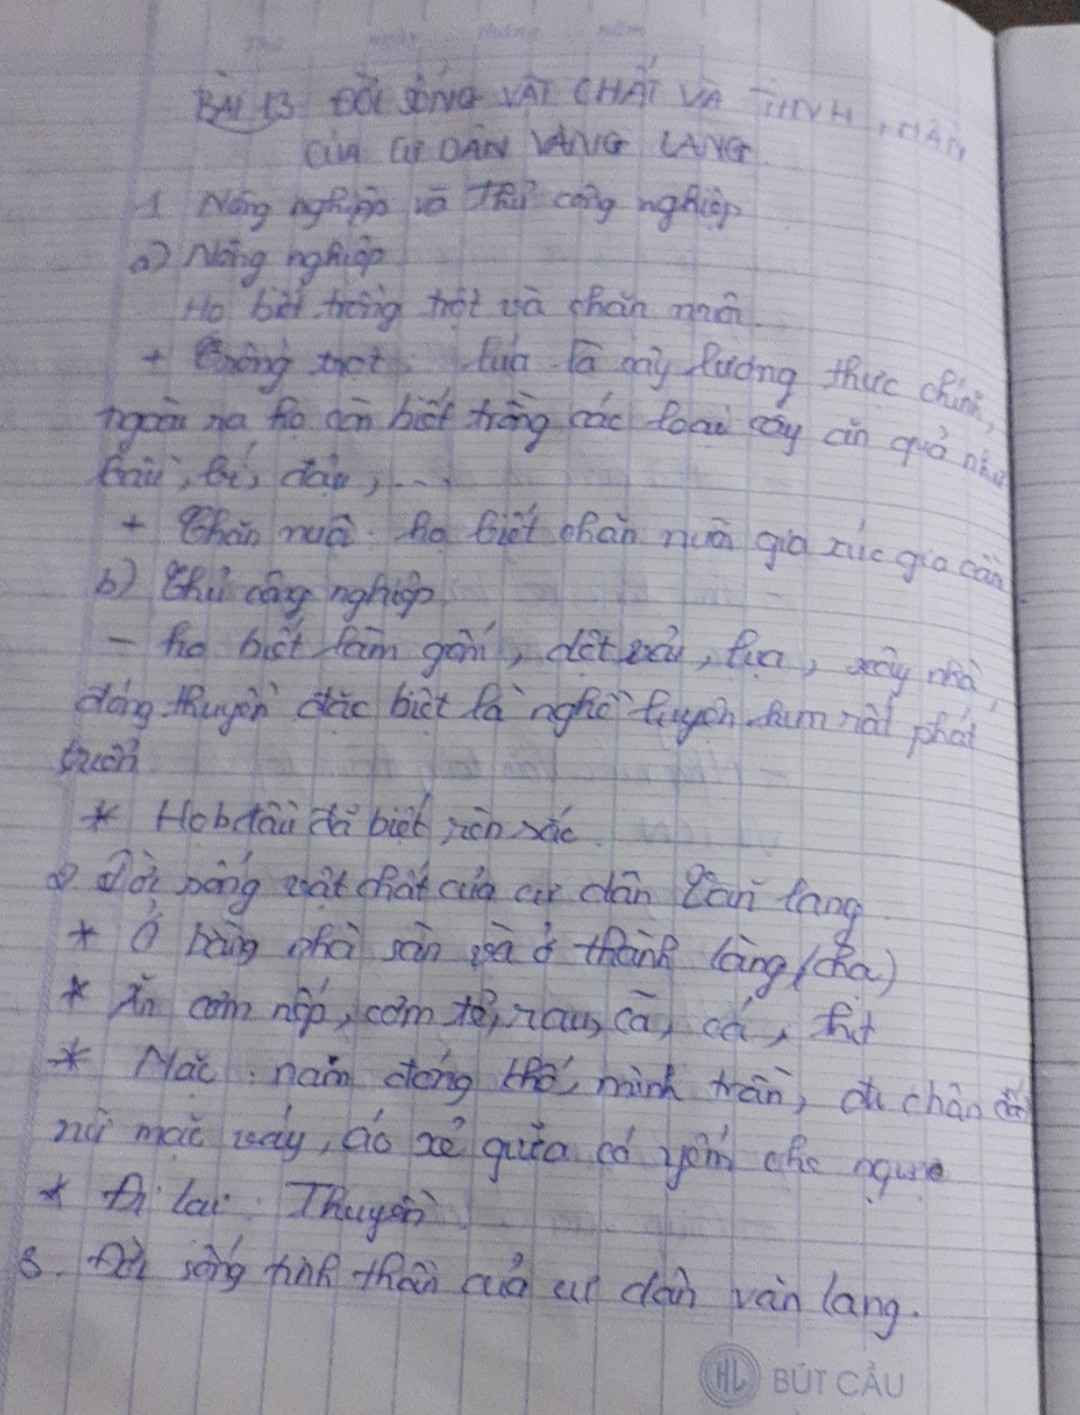 Thứ ngày tháng năm
BÀI 13 ĐỜI SỐNG VẬT CHẤT VÀ TINH THẦN
CỦA CƯ DÂN VĂNG LANG
1 Nông nghiệp và Thủ công nghiệp
a) Nông nghiệp
Họ biết trồng trọt và chăn nuôi
+ Trồng trọt: lúa là cây lương thực chính,
ngoài ra họ còn biết trồng các loại cây ăn quả như
bầu, bí, đậu, ...
+ Chăn nuôi: họ biết chăn nuôi gia xúc gia cầm
b) Thủ công nghiệp
- họ biết làm gốm, dệt vải, lụa, xây nhà,
đóng thuyền đặc biệt là nghề luyện kim rất phát
triển
* Họ bđầu đã biết rèn sắt
2. Đời sống vật chất của cư dân Văn lang
* Ở bằng nhà sàn và ở thành làng (chạ)
* Ăn cơm nếp, cơm tẻ, rau, cà, cá, thịt
* Mặc: nam đóng khố, mình trần, đi chân đất
nữ mặc váy, áo xẻ giữa có yếm che ngực
* Đi lại: Thuyền
3. Đời sống tinh thần của cư dân văn lang.
HL BÚT CẦU